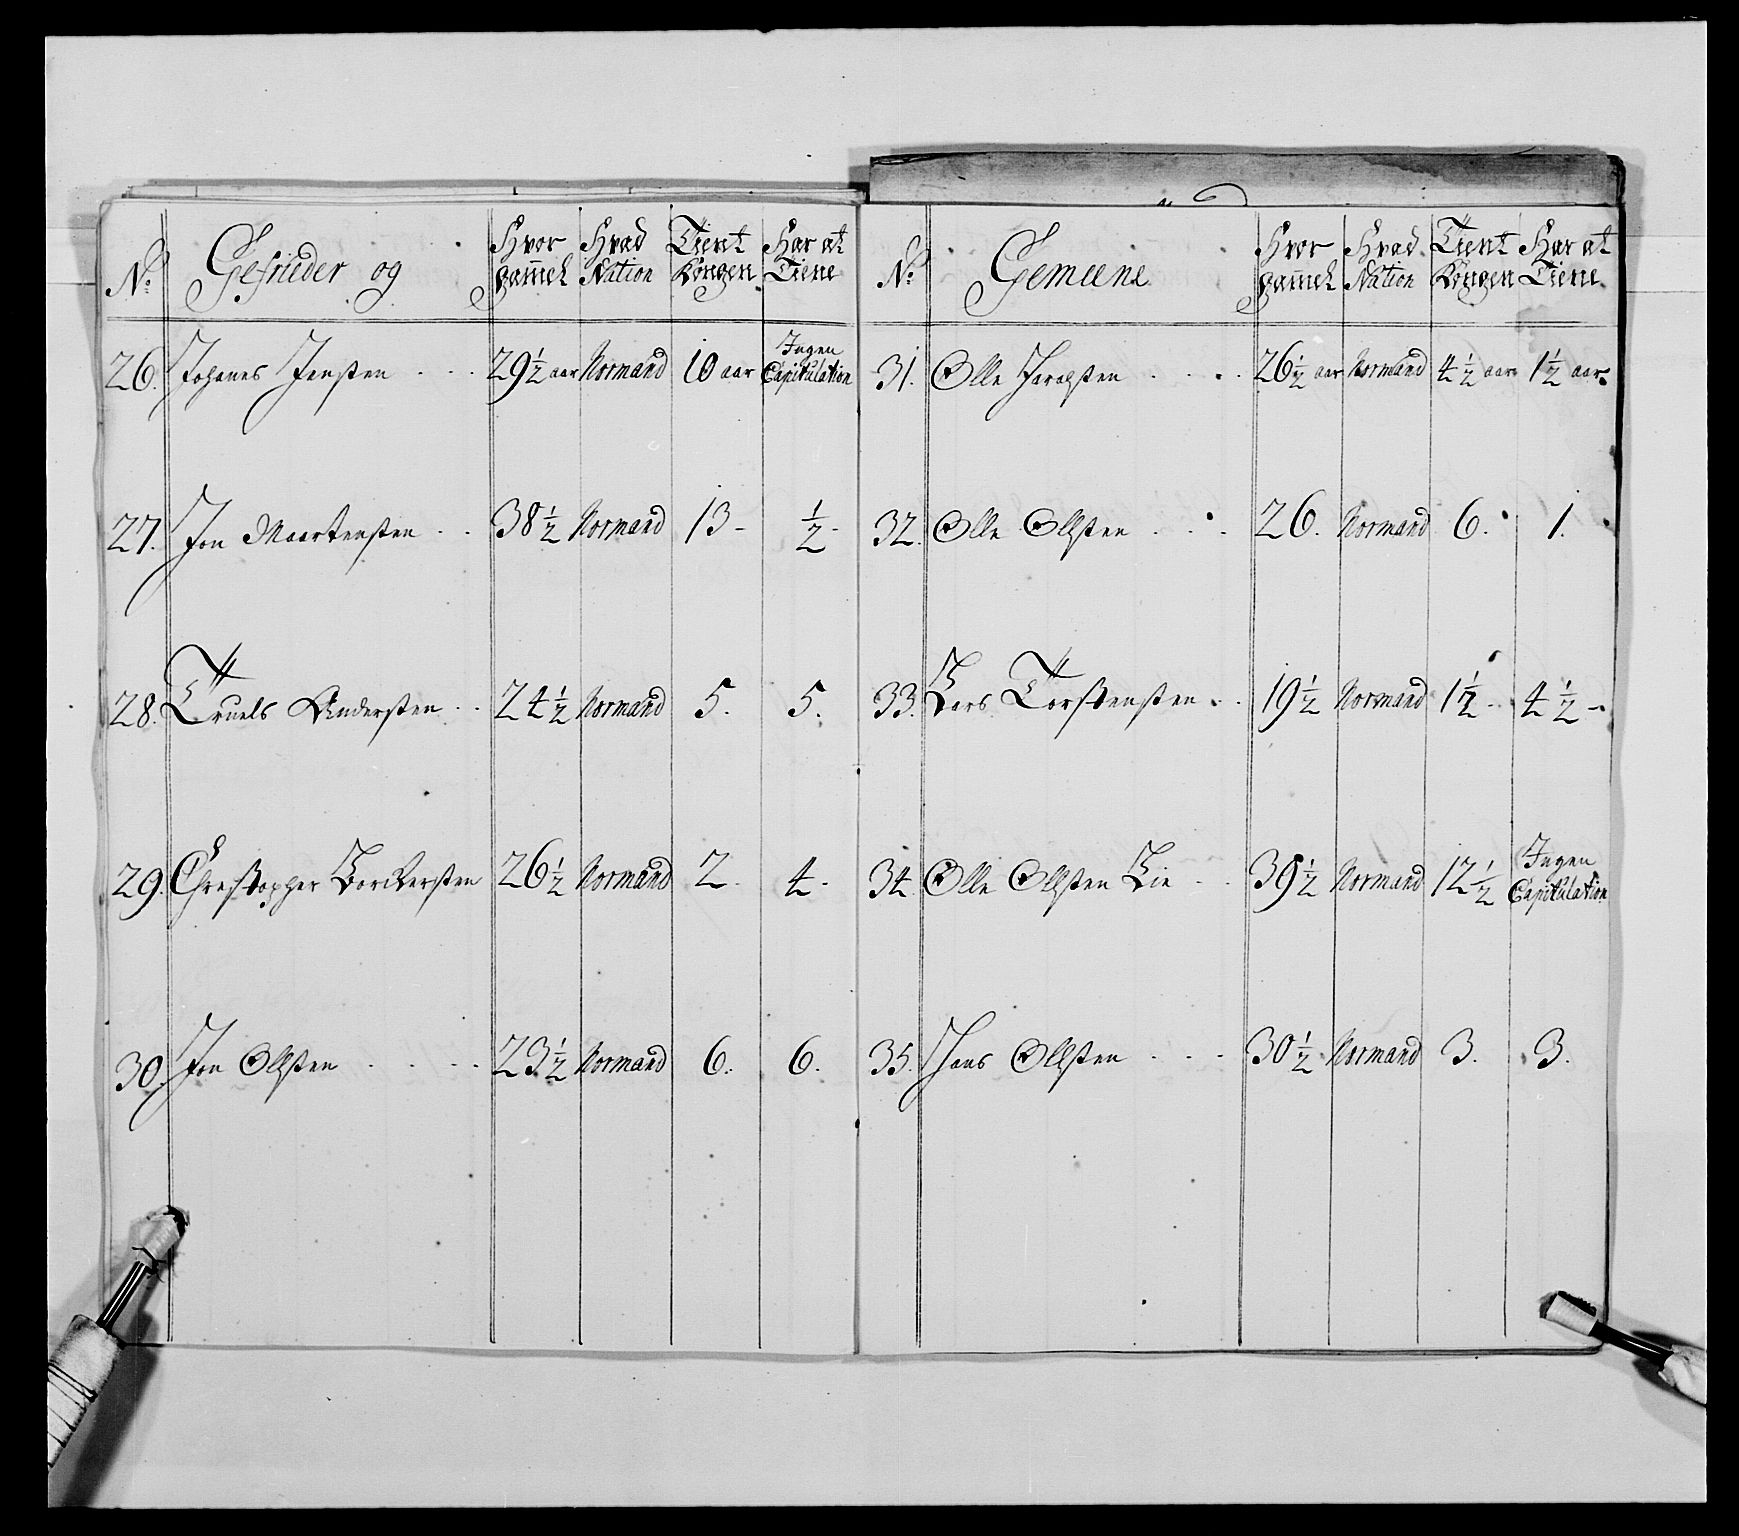 No: Gefriider og Hvor gam̄el Hvad Nation Tient Kongen Har at Tiene
26. Johanes Jensten 29½ aar Normand 10 aar Ingen Capitulation
27. Jon Maartensten 38½ Normand 13 ½
28. Truels Andersten 24½ Normand 5. 5.
29. 26½ Normand 2. 4
30. Jon Ollsten 23½ Normand 6. 6.
No: Gemeene Hvor gam̄el Hvad Nation Tient Kongen Har at Tiene
31. Olle 26½ aar Normand 4½ aar 1½ aar
32. Olle Ollsten 26. Normand 6. 1.
33. Lars Torstensten 19½ Normand 1½ 4½
34 Olle Ollsten Lie 39½ Normand 12½ Ingen Capitulation
35. Hans Ollsten 30½ Normand 3. 3.